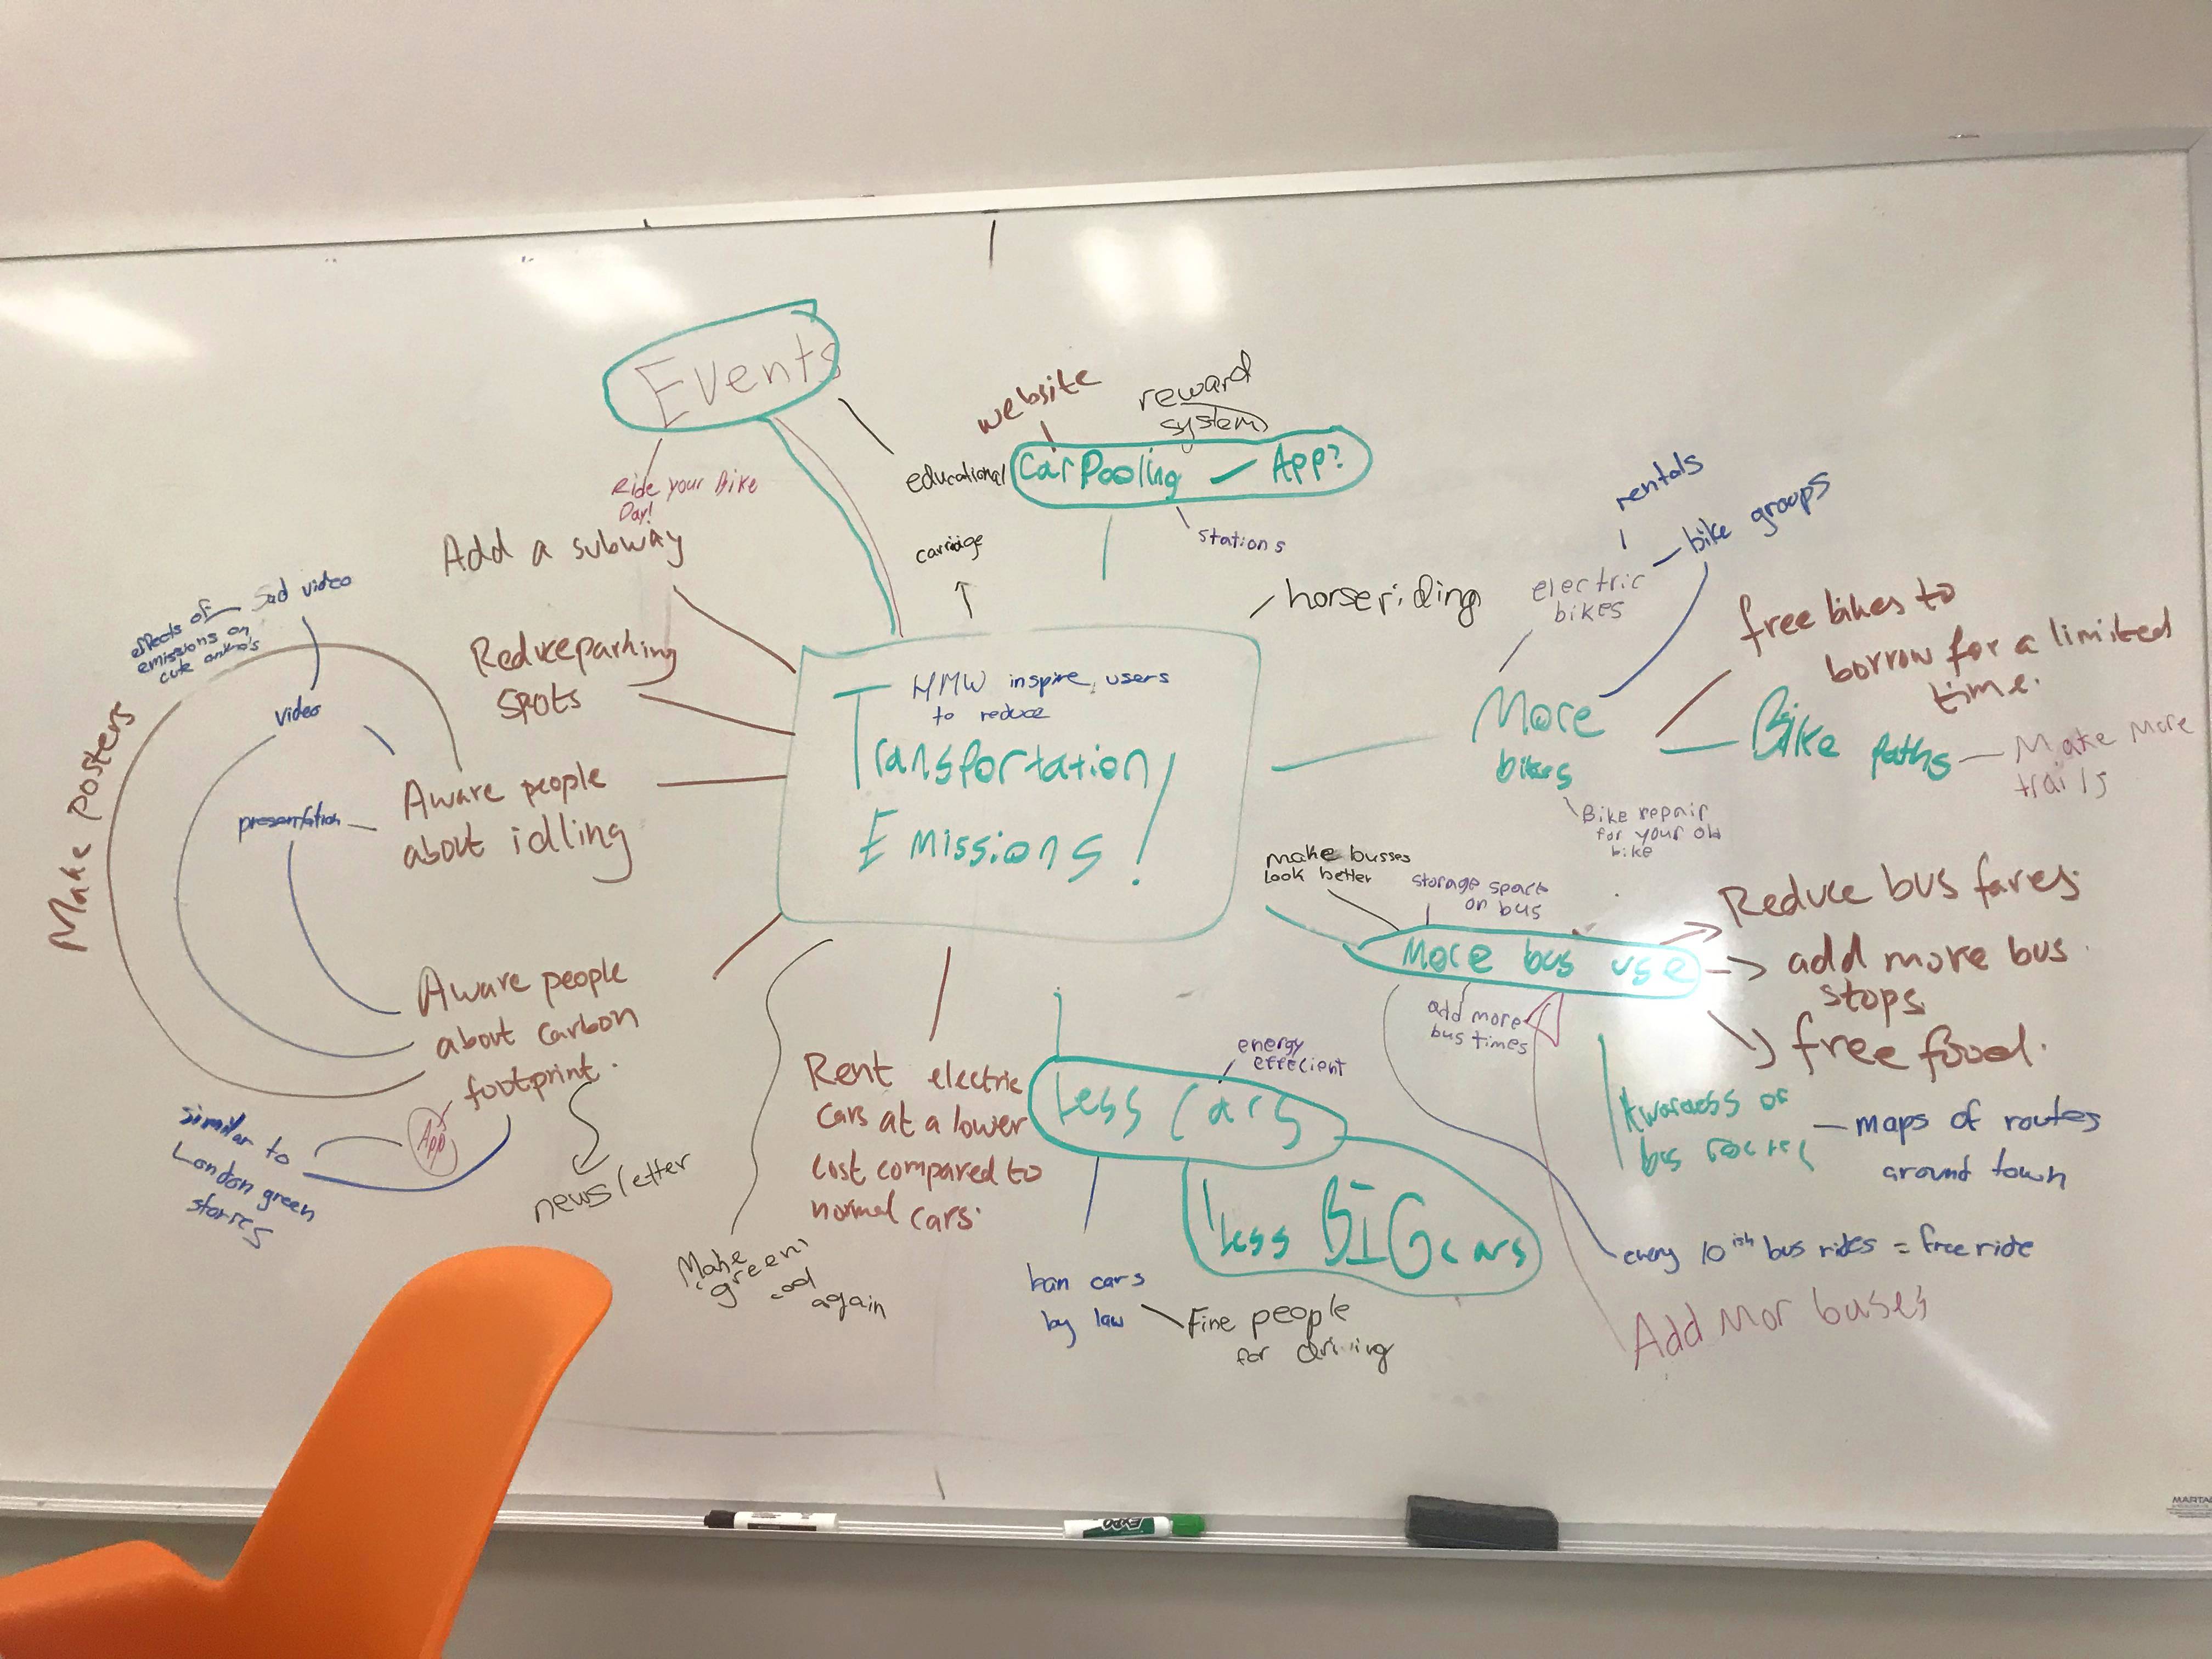 Events
Ride your Bike
Day!
educational
website
reward
system
CarPooling - App?
stations
carriage
horseriding
Add a subway
Reduce parking
spots
HMW inspire users
to reduce
Transportation
Emissions!
sad video
effects of
emissions on
cute
video
presentation
Make posters
Aware people
about idling
Aware people
about carbon
footprint.
App
similar to
London green
stories
newsletter
Make
"green"
cool
again
Rent electric
cars at a lower
cost compared to
normal cars.
Less Cars
energy
effecient
Less BIG cars
ban cars
by law
Fine people
for driving
rentals
bike groups
electric
bikes
More
bikes
free bikes to
borrow for a limited
time.
Bike Paths
Make More
trails
Bike repair
for your old
bike
make busses
look better
storage space
on bus
More bus use
Reduce bus fares
add more bus
stops
free food.
add more
bus times
Awareness of
bus routes
maps of routes
around town
every 10ish bus rides = free ride
Add Mor buses
EXPO